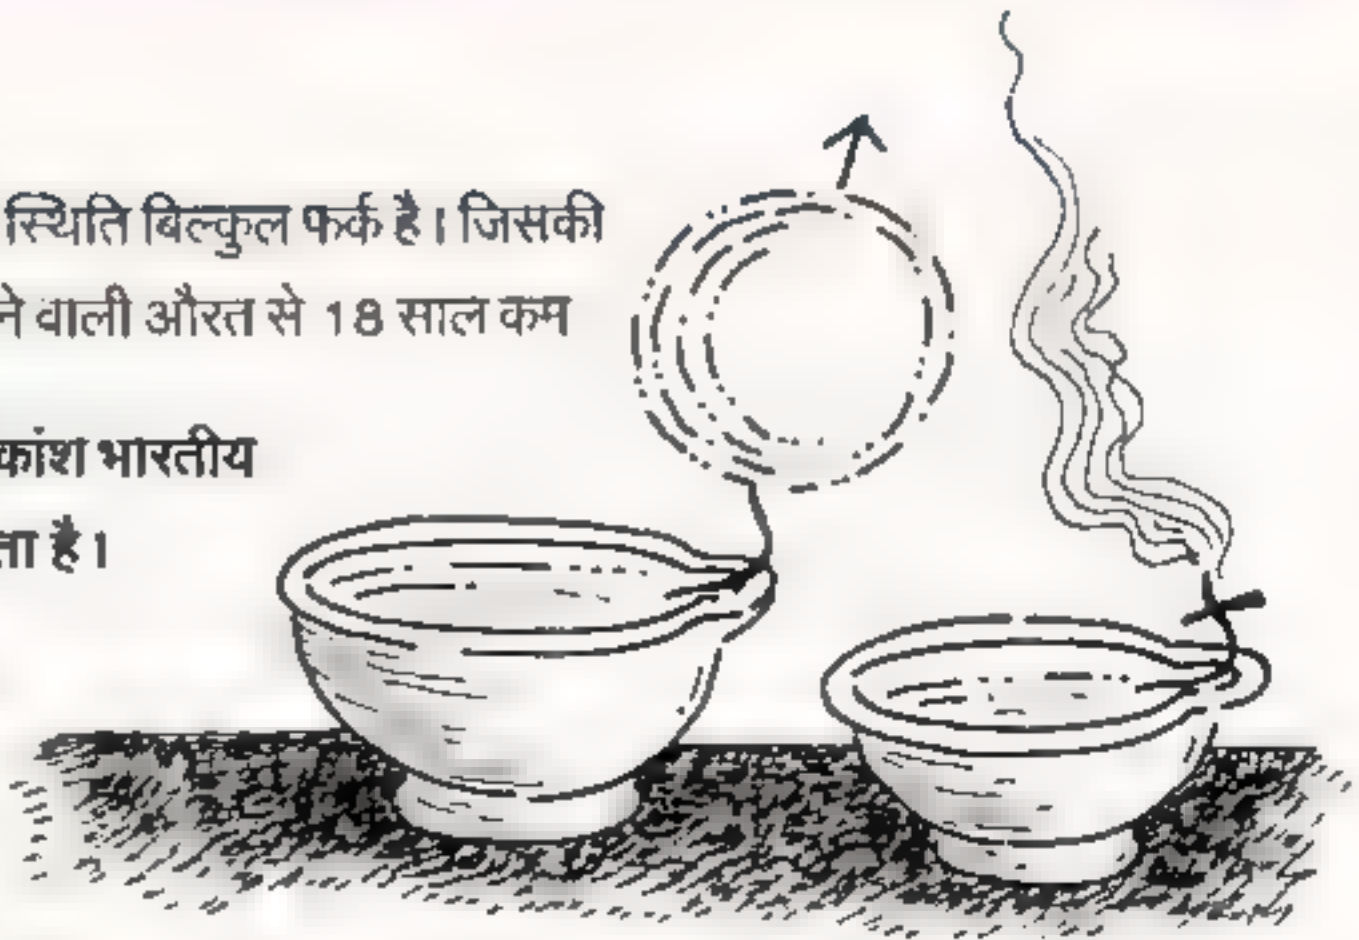 स्थिति बिल्कुल फर्क है। जिसकी
ने वाली औरत से 18 साल कम
कांश भारतीय
ता है।